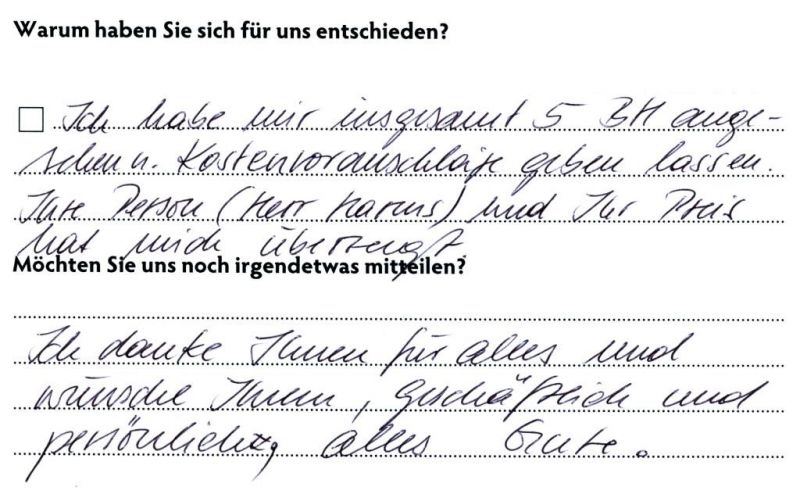 Warum haben Sie sich für uns entschieden?
Ich habe mir insgesamt 5 BH ange-
sehen u. Kostenvoranschläge geben lassen.
Ihre Person (Herr Harms) und Ihr Preis
hat mich überzeugt.
Möchten Sie uns noch irgendetwas mitteilen?
Ich danke Ihnen für alles und
wünsche Ihnen, geschäftlich und
persönlich, alles Gute.